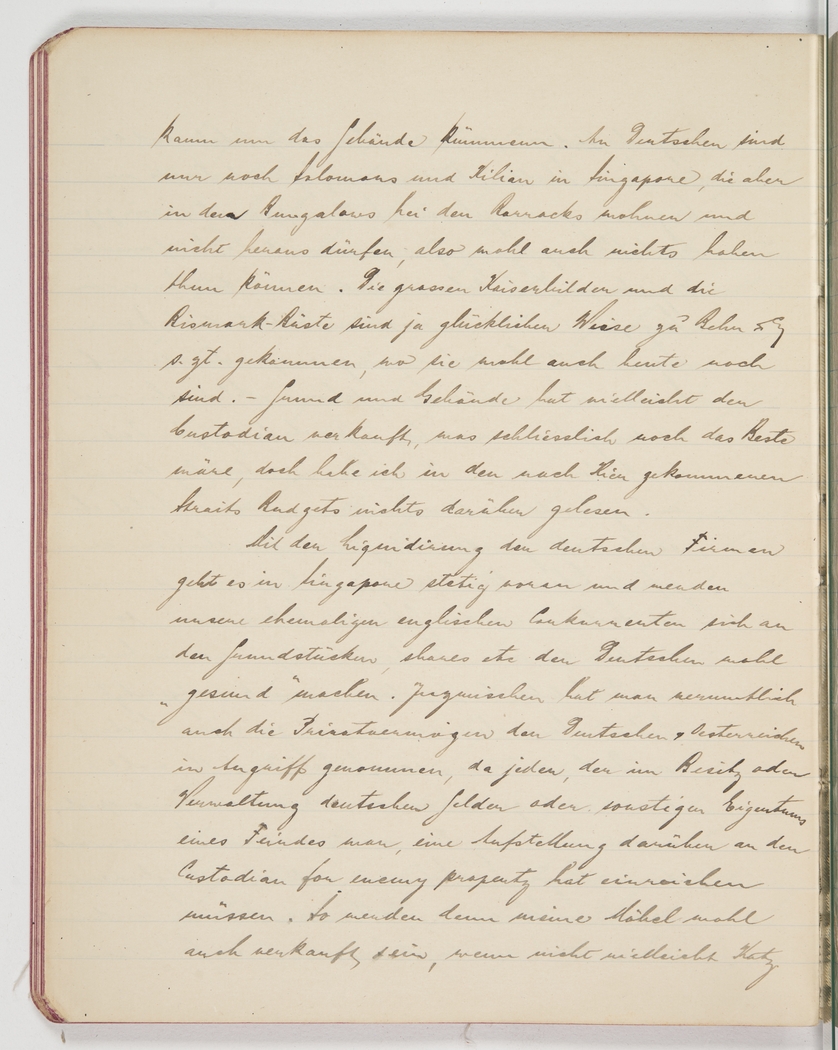 kann um das Gebäude kümmern. An Deutschen sind
nur noch Salomons und Kilian in Singapore, die aber
in den Bungalows bei den Barracks wohnen und
nicht heraus dürfen, also wohl auch nichts haben
thun können. Die grossen Kaiserbilder und die
Bismark-Büste sind ja glücklicher Weise zu Behn &
s. Zt. gekommen, wo sie wohl auch heute noch
sind. – Grund und Gebäude hat vielleicht der
Custodian verkauft, was schliesslich noch das Beste
wäre, doch habe ich in den nach Hier gekommenen
Straits Budgets nichts darüber gelesen.
Mit der Liquidirung der deutschen Firmen
geht es in Singapore stetig voran und werden
unsere ehemaligen englischen Conkurrenten sich an
den Grundstücken, shares etc der Deutschen wohl
„gesund" machen. Inzwischen hat man vermutlich
auch die Privatvermögen der Deutschen & Oesterreicher
in Angriff genommen, da jeder, der im Besitz oder
Verwaltung deutscher Gelder oder sonstigen Eigentums
eines Feindes war, eine Aufstellung darüber an den
Custodian for enemy property hat einreichen
müssen. So werden denn meine Möbel wohl
auch verkauft sein, wenn nicht vielleicht Katz